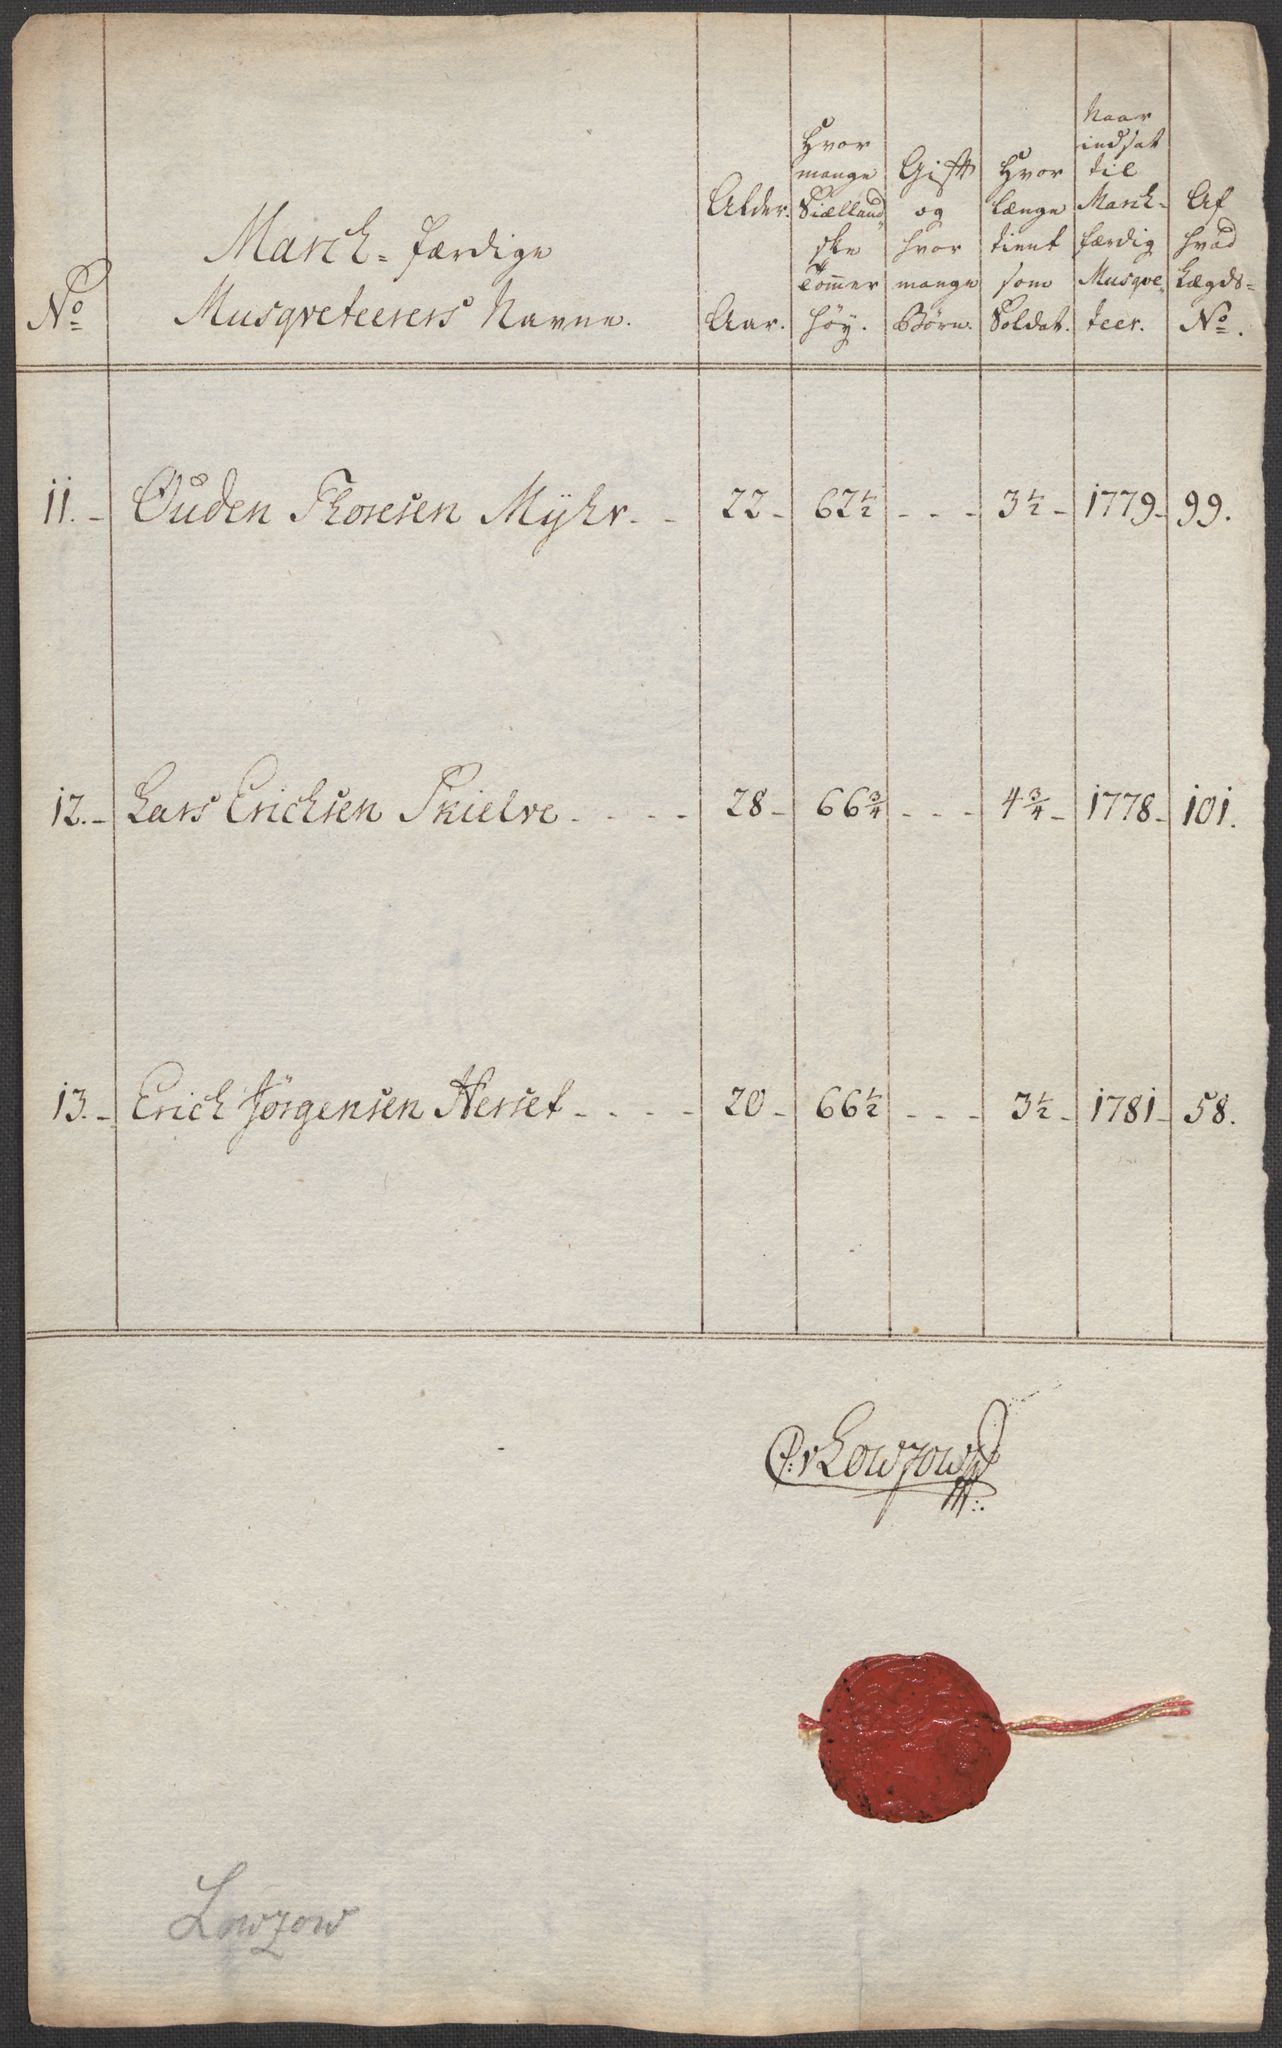 No
March-færdige
Musqveteerers Navne.
Alder.
Aar.
Hvor
mange
Siælland„
ske
Tommer
høy.
Gift
og
hvor
mange
Børn.
Hvor
længe
tient
som
Soldat.
Naar
indsat
til
March-
færdig
Musqve„
teer.
Af
hvad
Lægds-
No.
11. - Ouden Thoresen Myhr. - - 22 - 62 1/2 - - - 3 1/2 - 1779 - 99.
12. - Lars Erichsen Skielve - - - - 28 - 66 3/4 - - - 4 3/4 - 1778 - 101.
13. - Erich Jørgensen Herset - - - - 20 - 66 1/2 - - - 3 1/2 - 1781 - 58.
v Lowzow
Lowzow